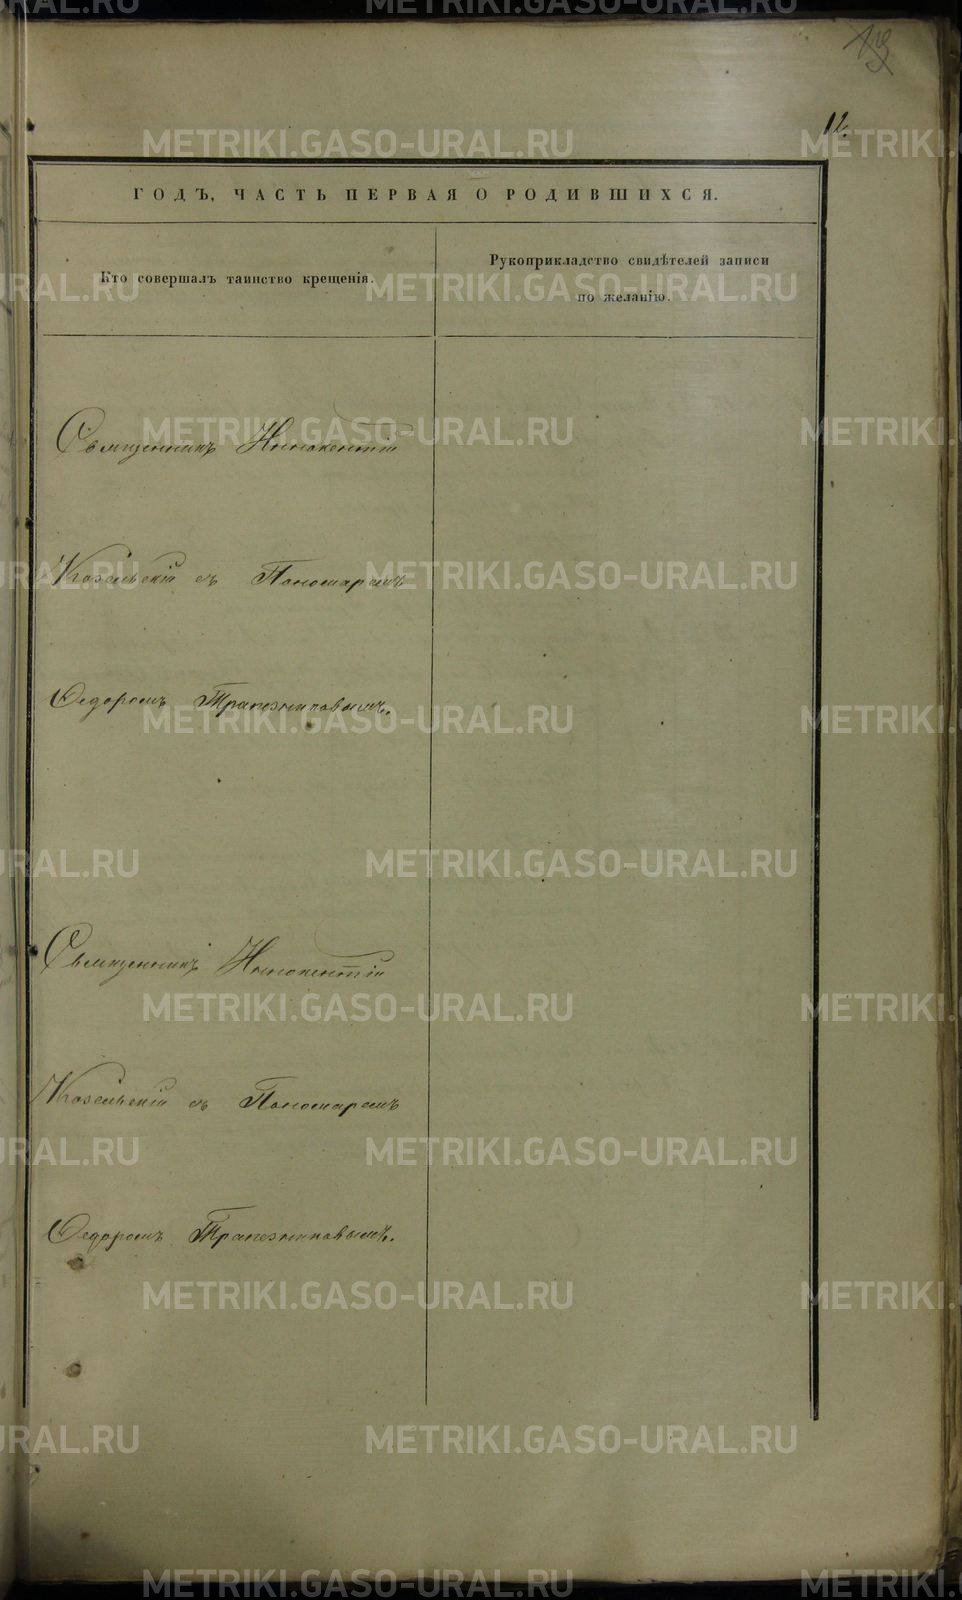 12.
ГОДЪ, ЧАСТЬ ПЕРВАЯ О РОДИВШИХСЯ.
Кто совершалъ таинство крещенія.
Рукоприкладство свидѣтелей записи
по желанію.
Священникъ Иннокентій
Козельскій съ Пономаремъ
Ѳедоромъ Трапезниковымъ.
Священникъ Иннокентій
Козельскій съ Пономаремъ
Ѳедоромъ Трапезниковымъ.
METRIKI.GASO-URAL.RU